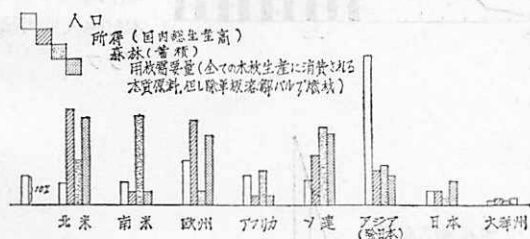 人口
所得(国内総生産高)
森林(蓄積)
用材需要量(全ての木材生産に消費される
木質原料,但し除単板溶解パルプ繊枝)
10%
北米 南米 欧州 アフリカ ソ連 アジア 日本 大洋州
(除日本)